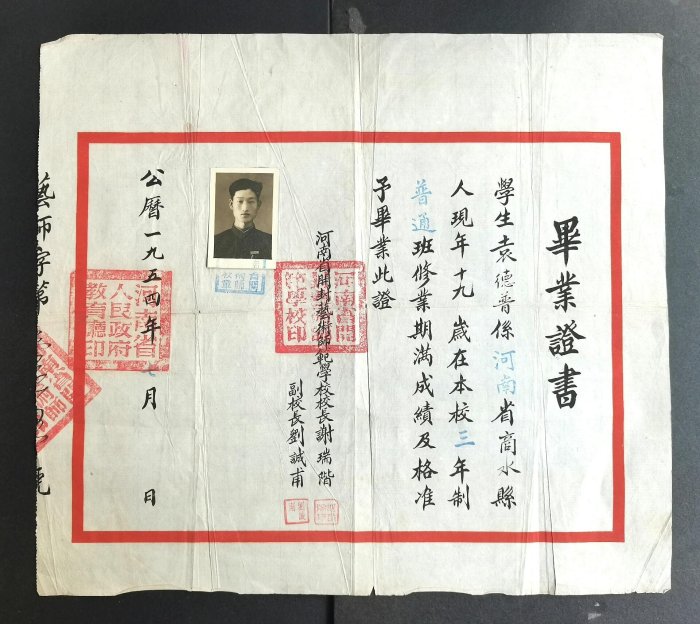 畢業證書
學生袁德普係河南省商水縣
人現年十九歲在本校三年制
普通班修業期滿成績及格准
予畢業此證
河南省開封藝術師範學校校長謝瑞階
副校長劉誠甫
公曆一九五四年七月 日
河南省人民政府教育廳印
藝師字第
號